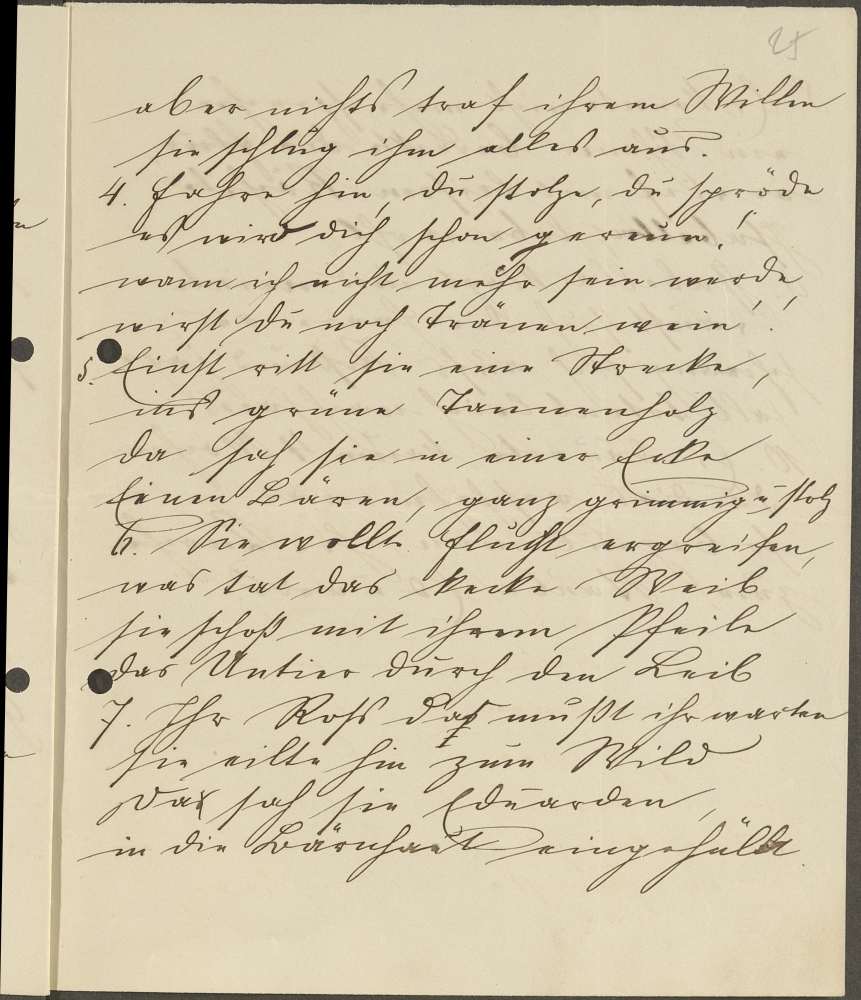 25
aber nichts traf ihrem Willen
sie schlug ihm alles aus.
4. Fahre hin, du stolze, du spröde
es wird dich schon gereun!
wann ich nicht mehr sein werde,
wirst du noch Tränen wein'!
5. Einst ritt sie eine Strecke,
ins grüne Tannenholz
da sah sie in einer Ecke
Einen Bären, ganz grimmig u stolz
6. Sie wollt Flucht ergreifen,
was tat das kecke Weib
sie schoß mit ihrem Pfeile
das Untier durch den Leib
7. Ihr Roß das mußt ihr warten
sie eilte hin zum Wild
Da sah sie Eduarden,
in die Bärnhaut eingehüllt